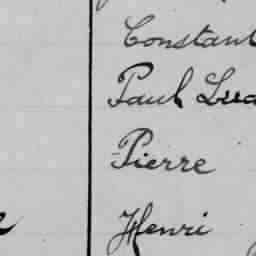 Constant
Paul
Pierre
Henri